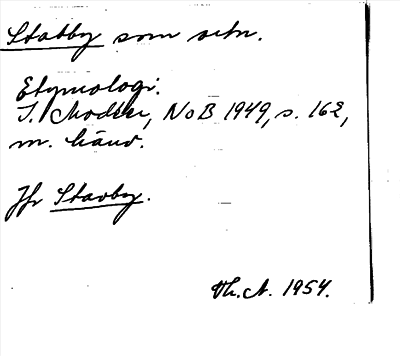 Stabby som ortn.
Etymologi.
I. Modéer, NoB 1949, s. 162,
m. hänv.
Jfr Stavby.
Th. A. 1954.